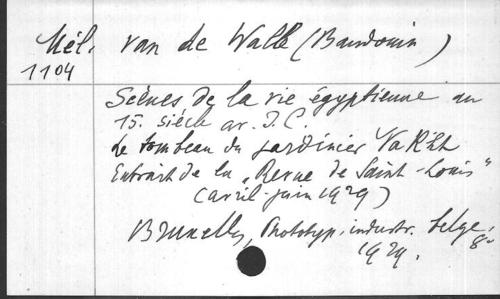 Mél. van de Walle (Baudouin)
1104
Scènes de la vie égyptienne au
15. siècle av. J. C.
Le tombeau du jardinier NaKht
Extrait de la "Revue de Saint-Louis"
(avril-juin 1929)
Bruxelles, Phototyp. industr. belge,
1929. 8°